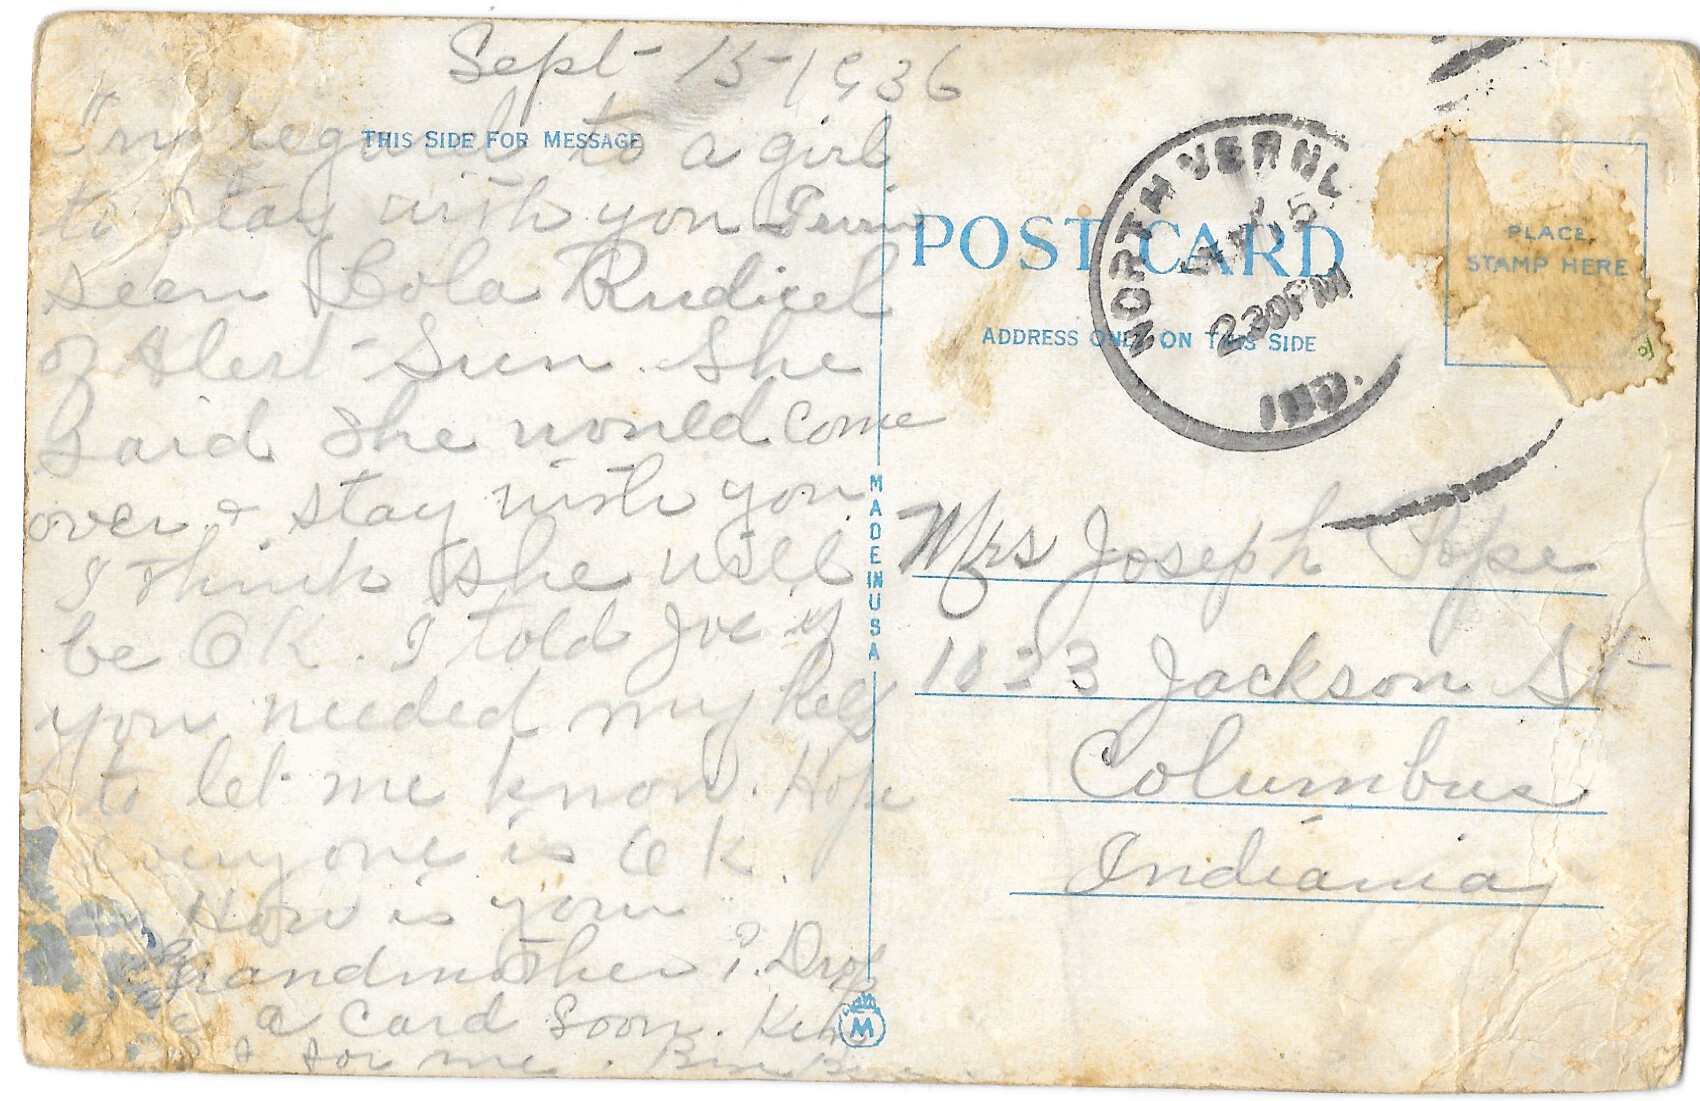 Sept - 15 - 1936
In regard to a girl
THIS SIDE FOR MESSAGE
to stay with you Irvin
seen Lola Rudicel
of Alert - Sun. She
Said she would come
over & stay with you
I think she will
be OK. I told Joe if
you needed my help
to let me know. Hope
everyone is OK.
How is your
Grandmother? Drop
a card soon. Kiss
for me. Bye Bye
POST CARD
ADDRESS ONLY ON THIS SIDE
PLACE
STAMP HERE
NORTH VERN
15
230PM
IND.
MADE IN USA
Mrs Joseph Pope
1023 Jackson St
Columbus
Indiana
M